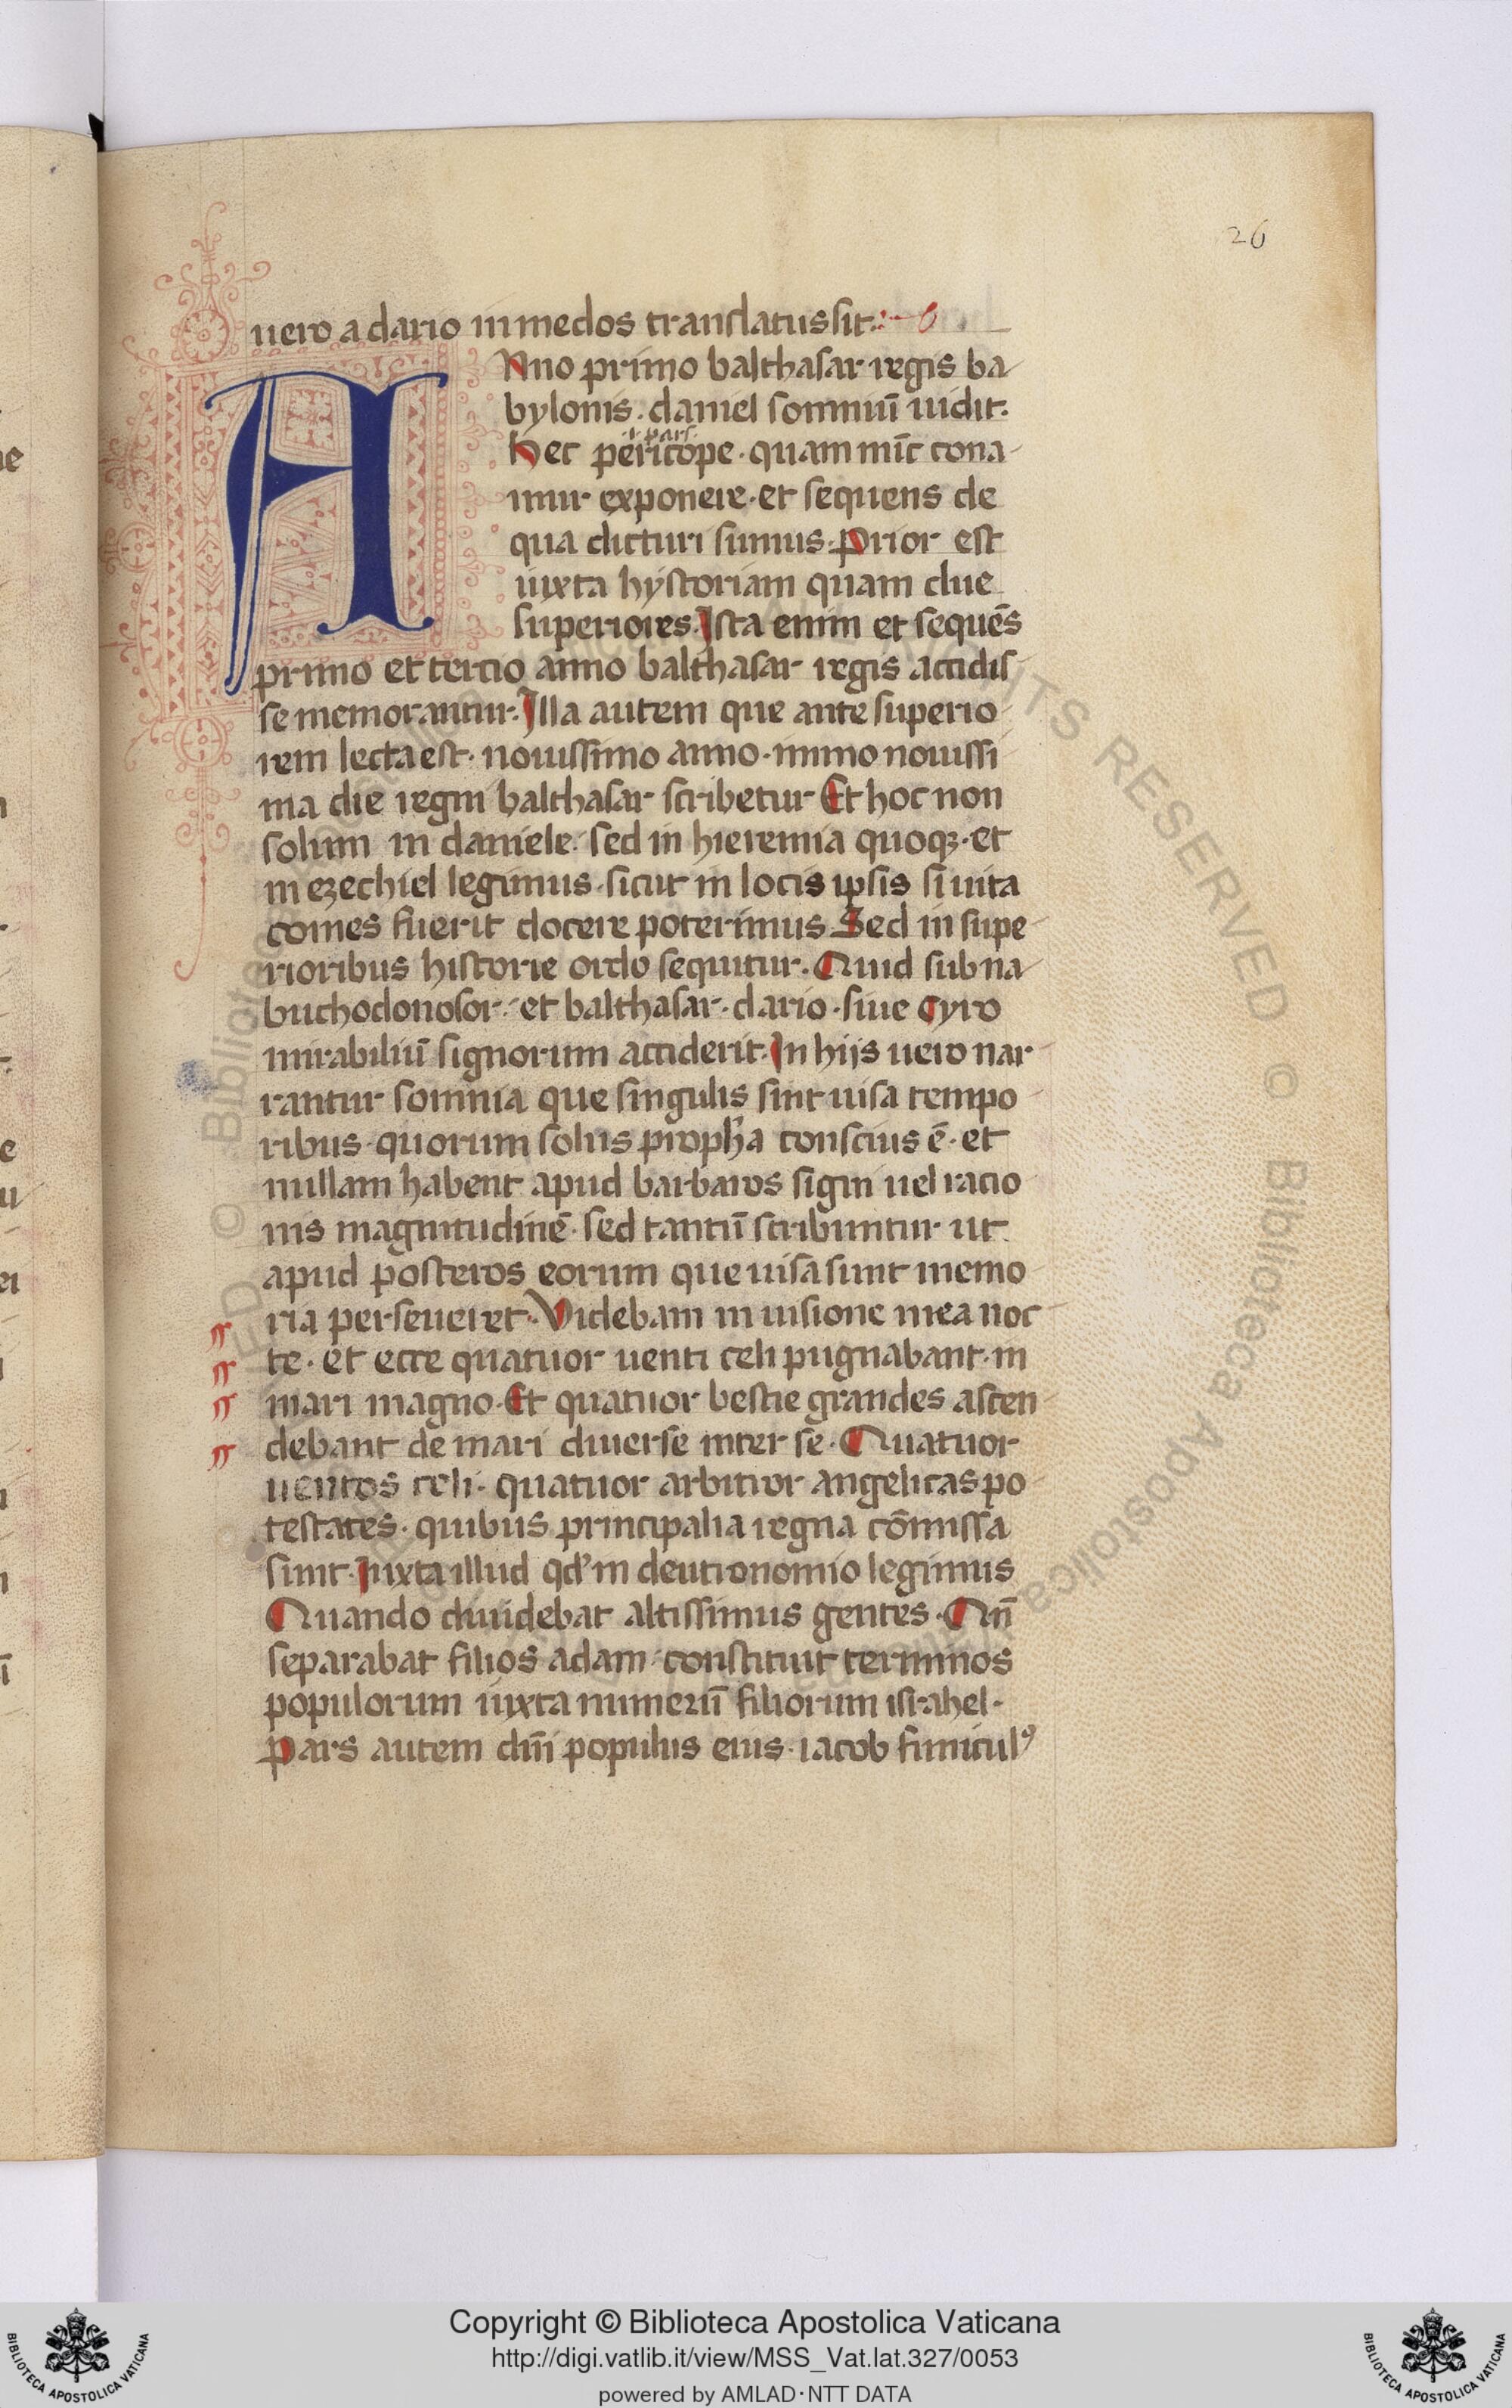 26
uero a dario in medos translatus sit.
ANno primo balthasar regis ba
bylonis. daniel somniū uidit.
.i. pars.
Hec pericope. quam nūc cona
mur exponere. et sequens de
qua dicturi sumus. Prior est
iuxta hystoriam quam due
superiores. Ista enim et sequēs
primo et tercio anno balthasar regis accidis
se memorantur. Illa autem que ante superio
rem lecta est. nouissimo anno. immo nouissi
ma die regni balthasar scribetur Et hoc non
solum in daniele. sed in hieremia quoqȝ. et
in ezechiel legimus. sicut in locis ipsis si uita
comes fuerit docere poterimus Sed in supe
rioribus historie ordo sequitur. Quid sub na
buchodonosor. et balthasar. dario. siue Cyro
mirabiliū signorum acciderit. In hijs uero nar
rantur somnia que singulis sint uisa tempo
ribus. quorum solus proph̄a conscius ē. et
nullam habent apud barbaros signi uel racio
nis magnitudinē. sed tantū scribuntur ut
apud posteros eorum que uisa sunt memo
ria perseueret. Videbam in uisione mea noc
te. et ecce quatuor uenti celi pugnabant. in
mari magno. Et quatuor bestie grandes ascen
debant de mari diuerse inter se. Quatuor
uentos celi. quatuor arbitror angelicas po
testates. quibus principalia regna cōmissa
sunt. Iuxta illud qd' in deutronomio legimus
Quando diuidebat altissimus gentes. Qn̄
separabat filios adam. constituit terminos
populorum iuxta numerū filiorum israhel.
Pars autem dn̄i populus eius. iacob funicul⁹
Copyright © Biblioteca Apostolica Vaticana
http://digi.vatlib.it/view/MSS_Vat.lat.327/0053
powered by AMLAD·NTT DATA